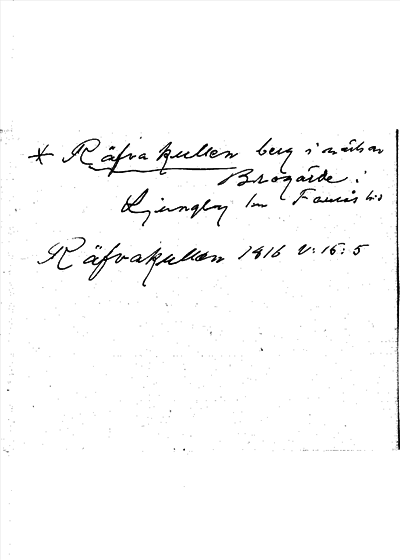 * Räfvakullen berg i närh av
Brogärde i
Ljungby sn Faurås hd
Räfvakullen 1816 V:15:5